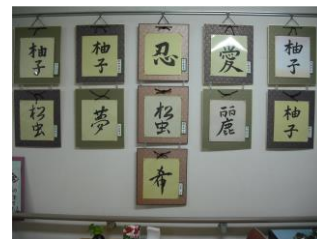 柚子
柚子
忍
愛
柚子
松虫
夢
松虫
麗
柚子
希